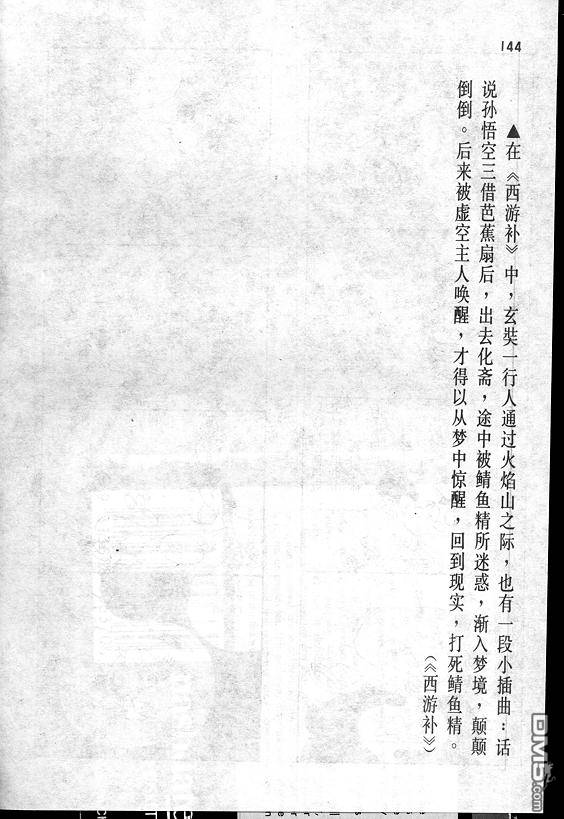 144
▲在《西游补》中，玄奘一行人通过火焰山之际，也有一段小插曲：话
说孙悟空三借芭蕉扇后，出去化斋，途中被鲭鱼精所迷惑，渐入梦境，颠颠
倒倒。后来被虚空主人唤醒，才得以从梦中惊醒，回到现实，打死鲭鱼精。
（《西游补》）
DM5.com